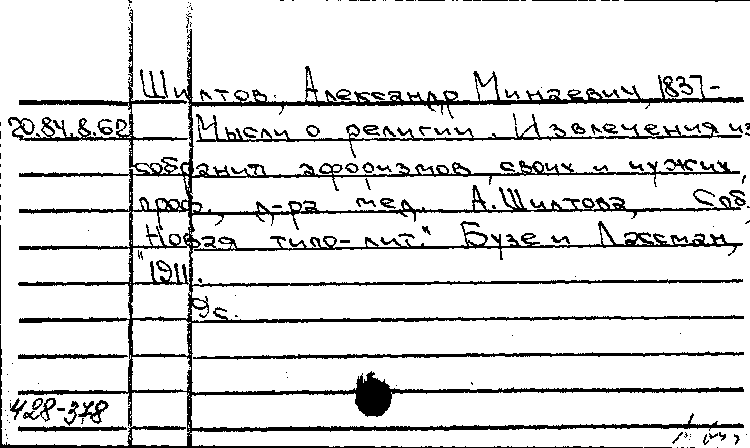 Шилтов, Александр Минаевич, 1837-
20.84.8.62 Мысли о религии. Извлечения из
собрания афоризмов своих и чужих,
проф., д-ра мед. А. Шилтова, Спб.,
"Новая типо-лит." Бузе и Лассман,
1911.
9 с.
428-378